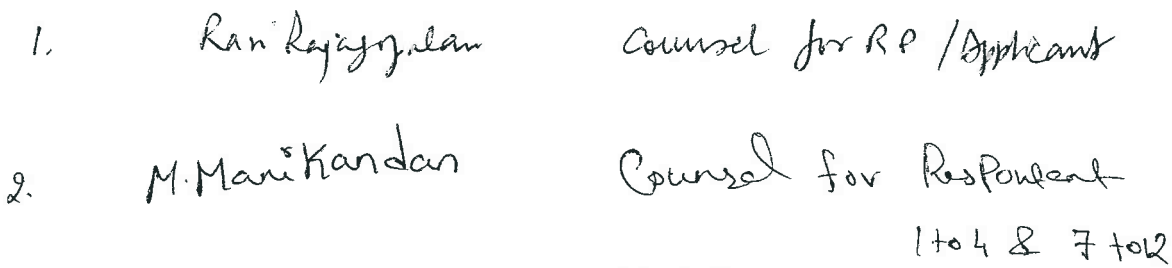 1. Ravi Rajagopalan Counsel for RP / Applicant
2. M. Manikandan Counsel for Respondent
1 to 4 & 7 to 12